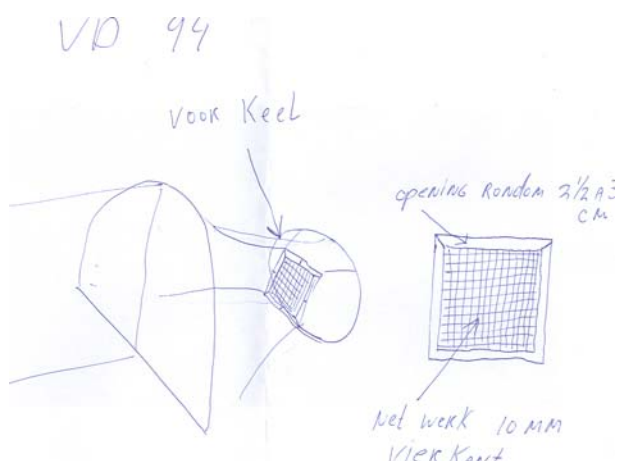 VD 94
Voor Keel
opening Rondom 2½ A 3
CM
Net werk 10 MM
Vier Kant